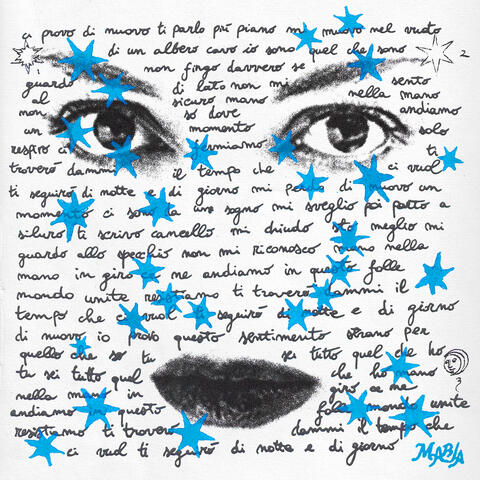 ci provo di nuovo ti parlo più piano mi muovo nel vuoto
di un albero cavo io sono quel che sono 2
non fingo davvero se
guardo di lato non mi sento
al sicuro mano nella mano
non so dove andiamo
un momento solo
respiro ci fermiamo ti
troverò dammi il tempo che ci vuol
ti seguirò di notte e di giorno mi perdo di nuovo un
momento ci sono da un sogno mi sveglio poi patto a
siluro ti scrivo cancello mi chiudo sto meglio mi
guardo allo specchio non mi riconosco mano nella
mano in giro ce ne andiamo in questo folle
mondo unite resistiamo ti troverò dammi il
tempo che ci vuol ti seguirò di notte e di giorno
di nuovo io provo questo sentimento strano per
quello che so tu sei tutto quel che ho
tu sei tutto quel che ho mano
nella mano in giro ce ne
andiamo in questo folle mondo unite
resistiamo ti troverò dammi il tempo che
ci vuol ti seguirò di notte e di giorno
3